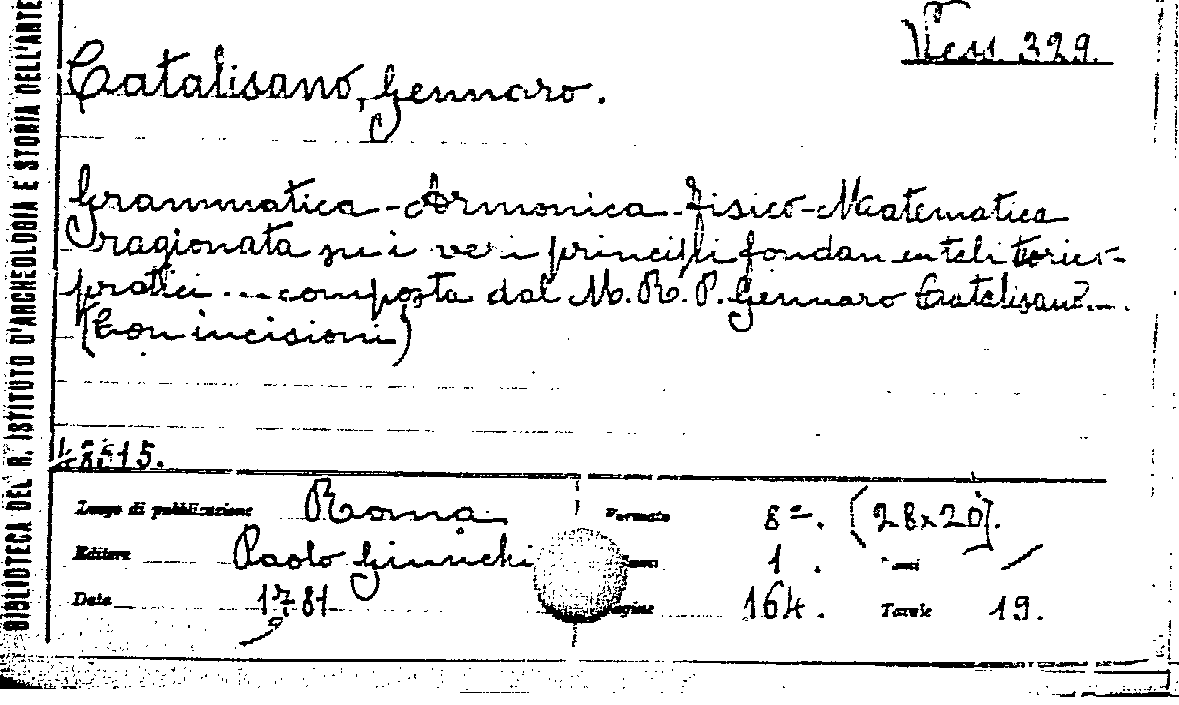 BIBLIOTECA DEL R. ISTITUTO D'ARCHEOLOGIA E STORIA DELL'ARTE
Vess. 329.
Catalisano, Gennaro.
Grammatica-Armonica-fisico-Matematica
ragionata su i veri principii fondamentali teorico-
pratici ... composta dal M. R. P. Gennaro Catalisano....
(Con incisioni)
8515.
Luogo di pubblicazione Roma Formato 8º. (28x20).
Editore Paolo Giunchi 1.
Data 1781 Pagine 164. Tavole 19.